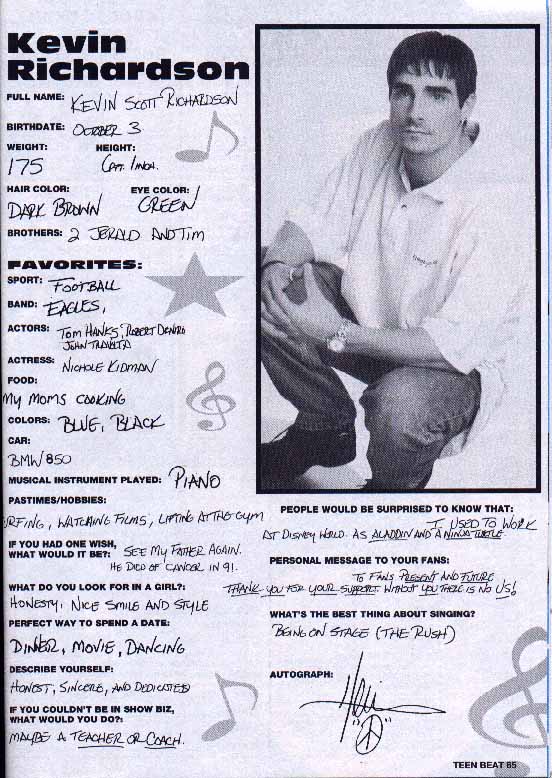 Kevin
Richardson
FULL NAME: KEVIN SCOTT RICHARDSON
BIRTHDATE: OCTOBER 3
WEIGHT: HEIGHT:
175 6FT. 1 INCH.
HAIR COLOR: EYE COLOR:
DARK BROWN GREEN
BROTHERS: 2 JERALD AND TIM
FAVORITES:
SPORT: FOOTBALL
BAND: EAGLES,
ACTORS: TOM HANKS, ROBERT DENIRO
JOHN TRAVOLTA
ACTRESS: NICHOLE KIDMAN
FOOD:
MY MOMS COOKING
COLORS: BLUE, BLACK
CAR:
BMW 850
MUSICAL INSTRUMENT PLAYED: PIANO
PASTIMES/HOBBIES:
URFING, WATCHING FILMS, LIFTING AT THE GYM
IF YOU HAD ONE WISH,
WHAT WOULD IT BE?: SEE MY FATHER AGAIN.
HE DIED OF CANCER IN 91.
WHAT DO YOU LOOK FOR IN A GIRL?:
HONESTY, NICE SMILE AND STYLE
PERFECT WAY TO SPEND A DATE:
DINNER, MOVIE, DANCING
DESCRIBE YOURSELF:
HONEST, SINCERE, AND DEDICATED
IF YOU COULDN'T BE IN SHOW BIZ,
WHAT WOULD YOU DO?:
MAYBE A TEACHER OR COACH.
PEOPLE WOULD BE SURPRISED TO KNOW THAT:
I USED TO WORK
AT DISNEY WORLD. AS ALADDIN AND A NINJA TURTLE.
PERSONAL MESSAGE TO YOUR FANS:
TO FANS PRESENT AND FUTURE
THANK YOU FOR YOUR SUPPORT WITHOUT YOU THERE IS NO US!
WHAT'S THE BEST THING ABOUT SINGING?
BEING ON STAGE (THE RUSH)
AUTOGRAPH:
TEEN BEAT 65